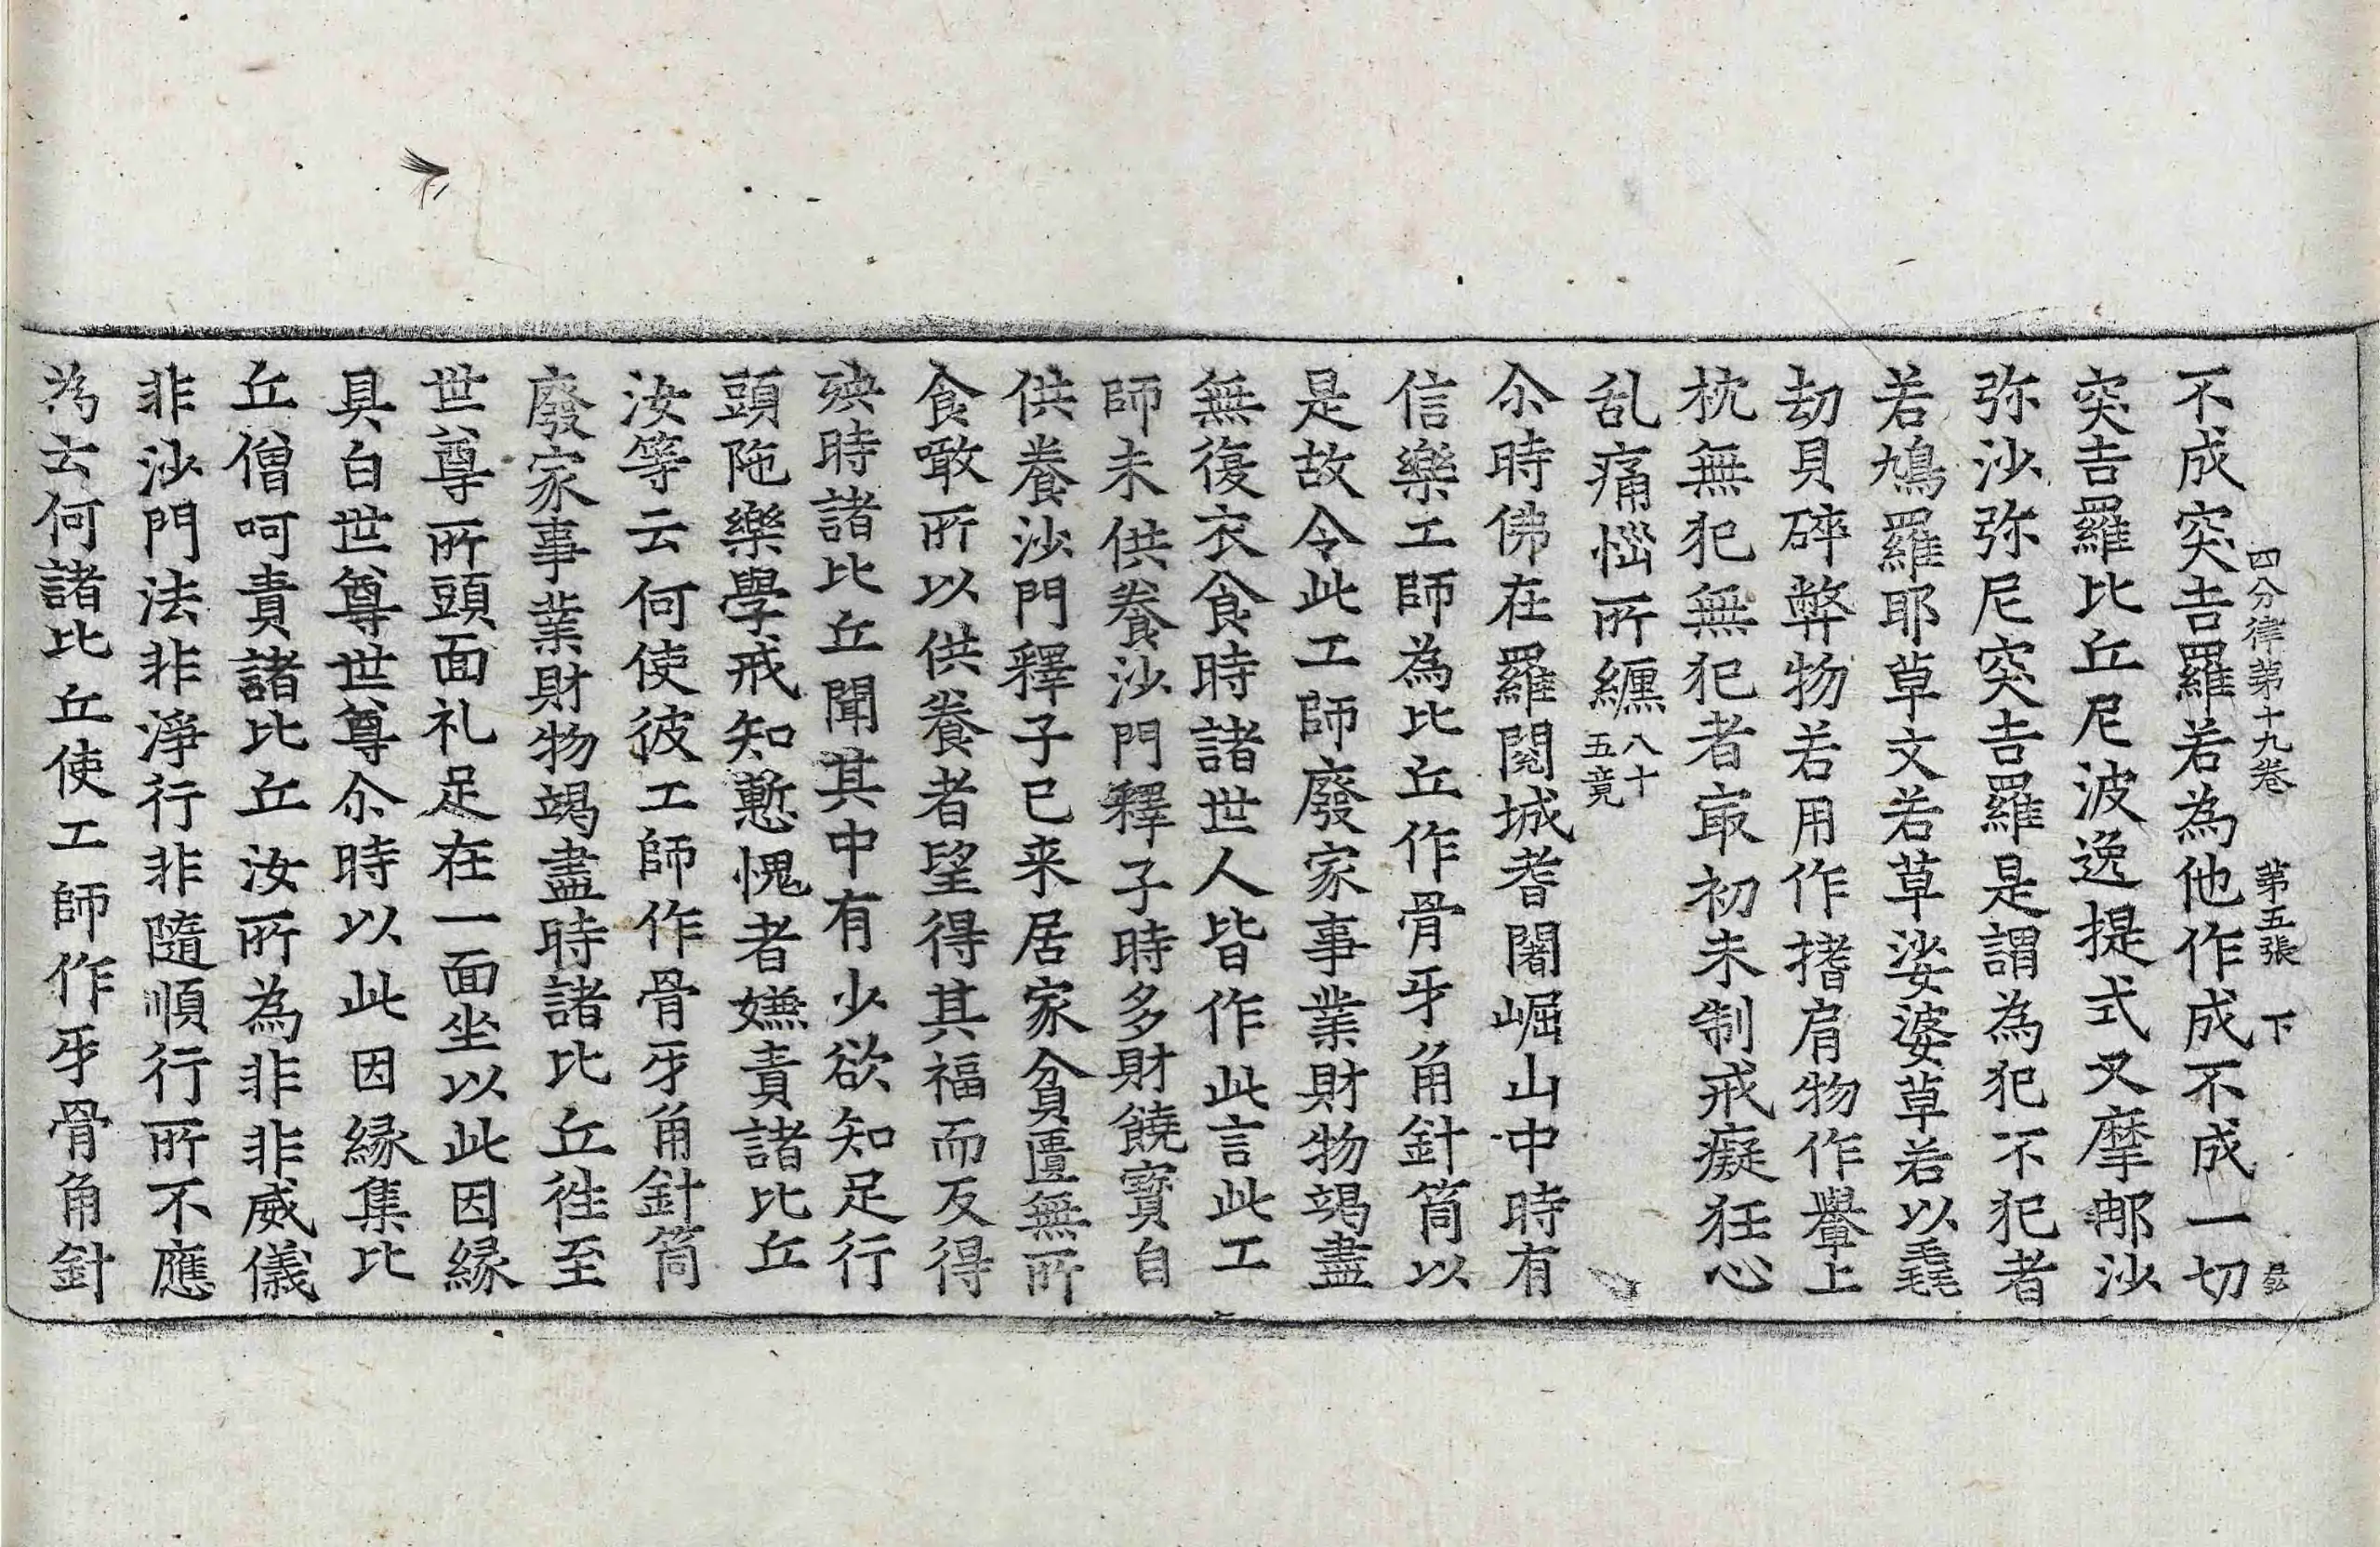 四分律第十九卷　第五張　下
不成突吉羅若為他作成不成一切
突吉羅比丘尼波逸提式叉摩那沙
弥沙弥尼突吉羅是謂為犯不犯者
若鳩羅耶草文若草娑婆草若以毳
劫貝碎弊物若用作搘肩物作轝上
枕無犯無犯者㝡初未制戒癡狂心
乱痛惱所纏八十五竟
尒時佛在羅閱城耆闍崛山中時有
信樂工師為比丘作骨牙角針筒以
是故令此工師廢家事業財物竭盡
無復衣食時諸世人皆作此言此工
師未供養沙門釋子時多財饒寶自
供養沙門釋子已来居家貧匱無所
食噉所以供養者望得其福而反得
殃時諸比丘聞其中有少欲知足行
頭陁樂學戒知慙愧者嫌責諸比丘
汝等云何使彼工師作骨牙角針筒
廢家事業財物竭盡時諸比丘徃至
世尊所頭面礼足在一面坐以此因縁
具白世尊世尊尒時以此因縁集比
丘僧呵責諸比丘汝所為非非威儀
非沙門法非淨行非隨順行所不應
為云何諸比丘使工師作牙骨角針